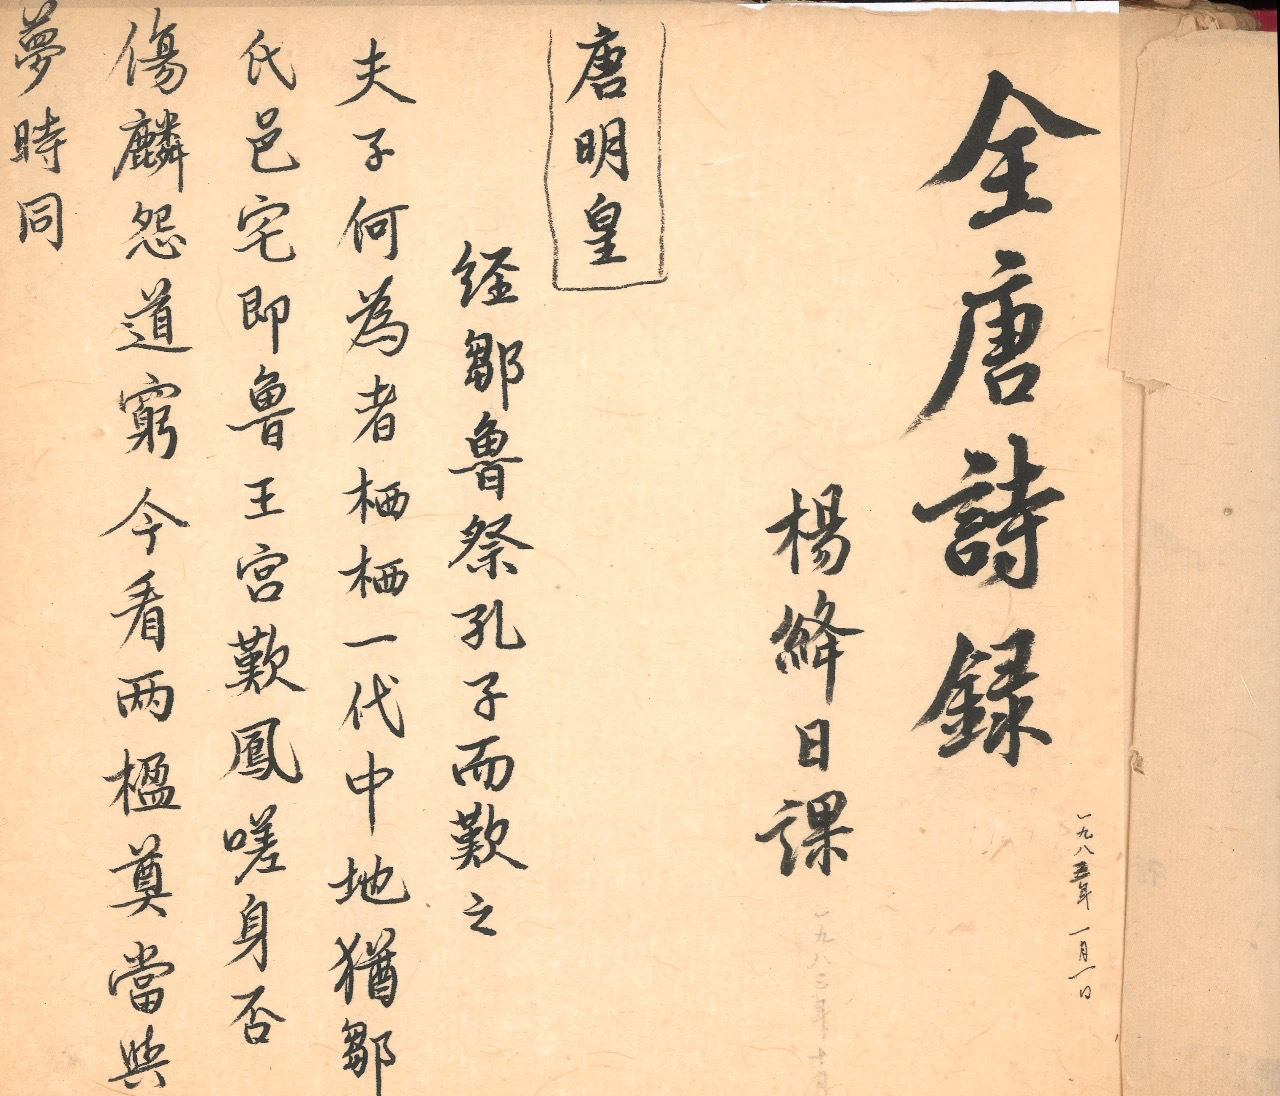 一九八五年一月一日
全唐詩録
楊絳日課
一九八三年十
唐明皇
経鄒魯祭孔子而歎之
夫子何為者栖栖一代中地猶鄒
氏邑宅即魯王宮歎鳳嗟身否
傷麟怨道窮今看两楹奠當與
夢時同